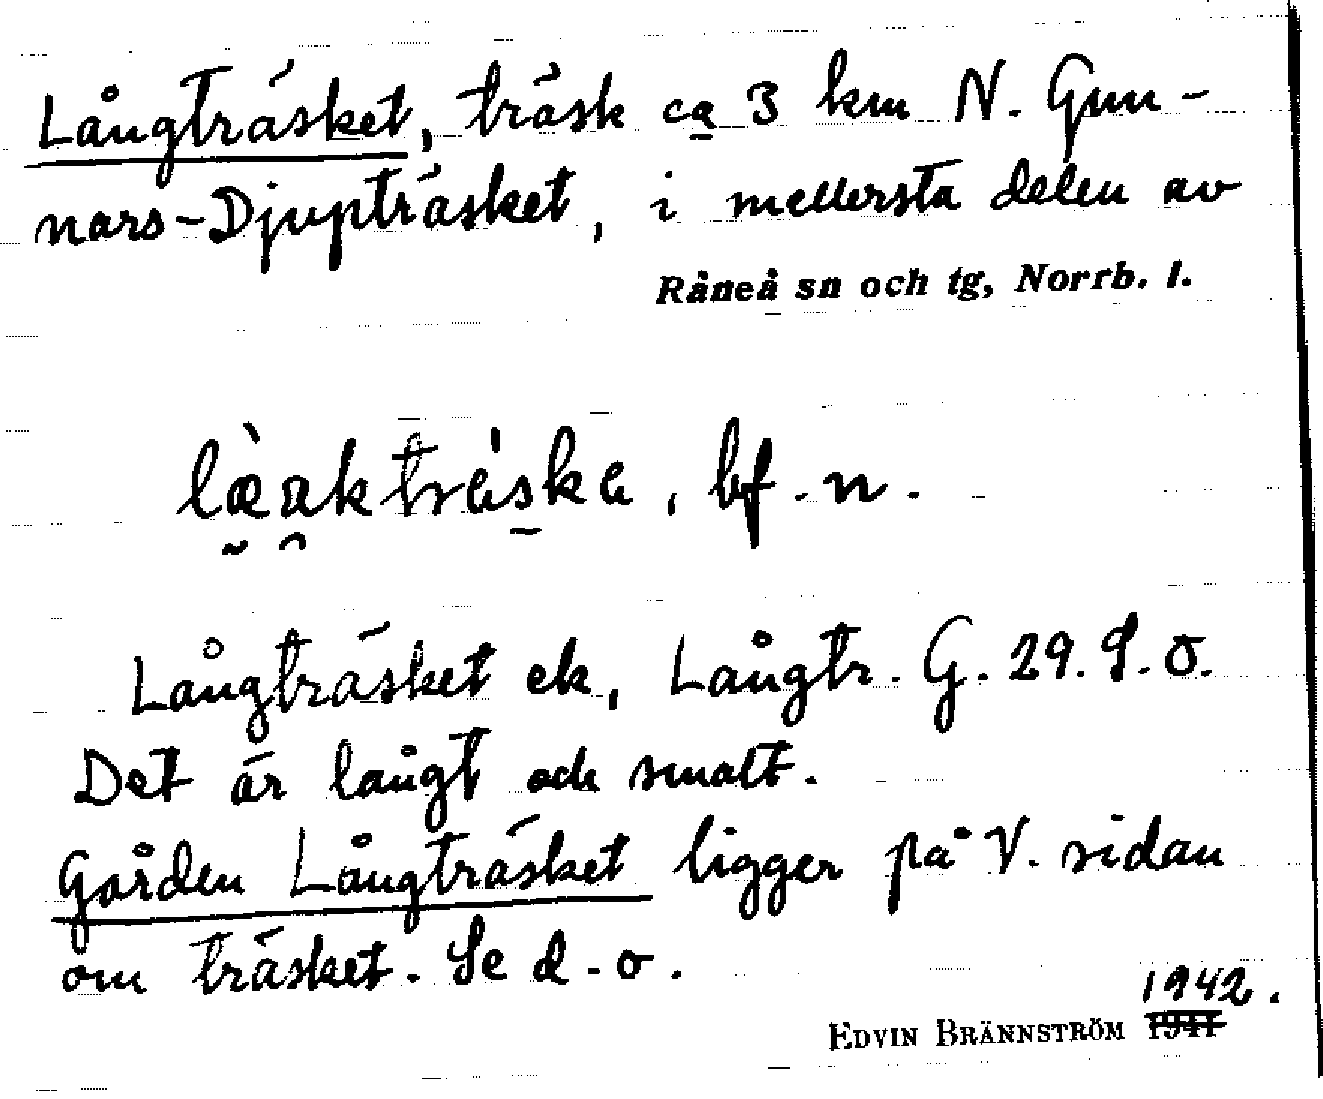 Långträsket, träsk ca 3 km N. Gun-
nars-Djupträsket, i mellersta delen av
Råneå sn och tg, Norrb. l.
bf. n.
Långträsket ek, Långtr. G. 29. S. o.
Det är långt och smalt.
Gården Långträsket ligger på V. sidan
om träsket. Se d. o.
1942.
EDVIN BRÄNNSTRÖM 1941